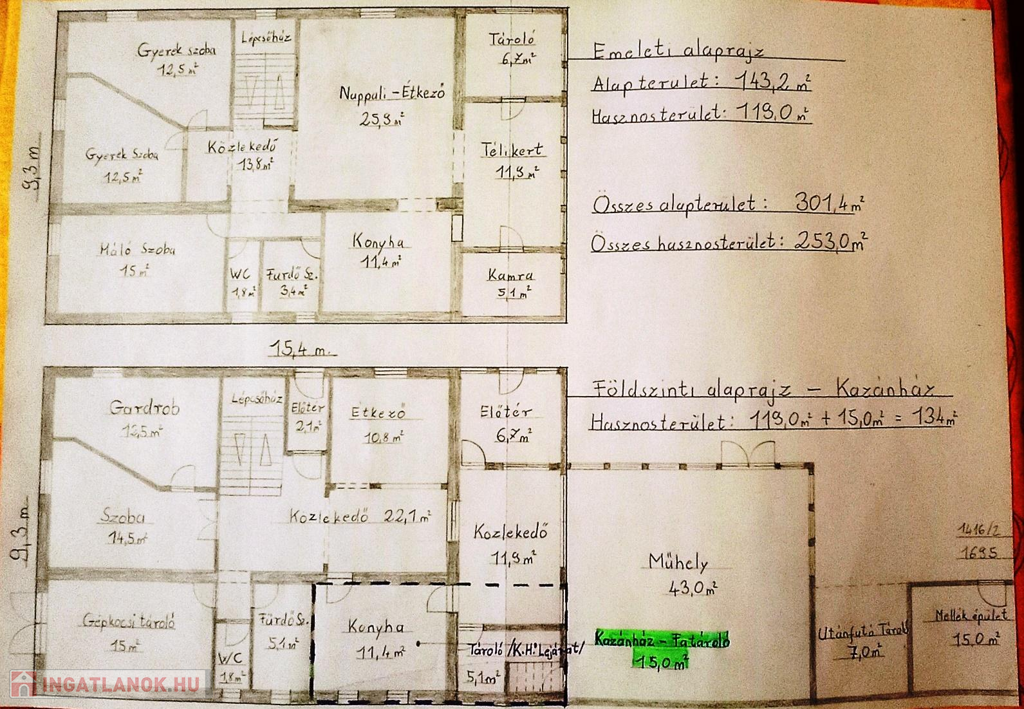 Gyerek szoba
12,5 m²
Lépcsőház
Nappali-Étkező
25,9 m²
Tároló
6,7 m²
Emeleti alaprajz
Alapterület: 143,2 m²
Hasznosterület: 119,0 m²
Gyerek Szoba
12,5 m²
Közlekedő
13,8 m²
Télikert
11,9 m²
9,3 m
Összes alapterület: 301,4 m²
Összes hasznosterület: 253,0 m²
Háló Szoba
15 m²
WC
1,8 m²
Fürdő Sz.
3,4 m²
Konyha
11,4 m²
Kamra
5,1 m²
15,4 m.
Földszinti alaprajz - Kazánház
Hasznosterület: 119,0 m² + 15,0 m² = 134 m²
Gardrob
12,5 m²
Lépcsőház
Előtér
2,1 m²
Étkező
10,8 m²
Előtér
6,7 m²
9,3 m
Szoba
14,5 m²
Közlekedő 22,1 m²
Közlekedő
11,9 m²
Műhely
43,0 m²
1416/2
1695
Gépkocsi tároló
15 m²
WC
1,8 m²
Fürdő Sz.
5,1 m²
Konyha
11,4 m²
Tároló /K.H. Lejárat/
5,1 m²
Kazánház - Fatároló
15,0 m²
Utánfutó Tároló
7,0 m²
Mellék épület
15,0 m²
INGATLANOK.HU